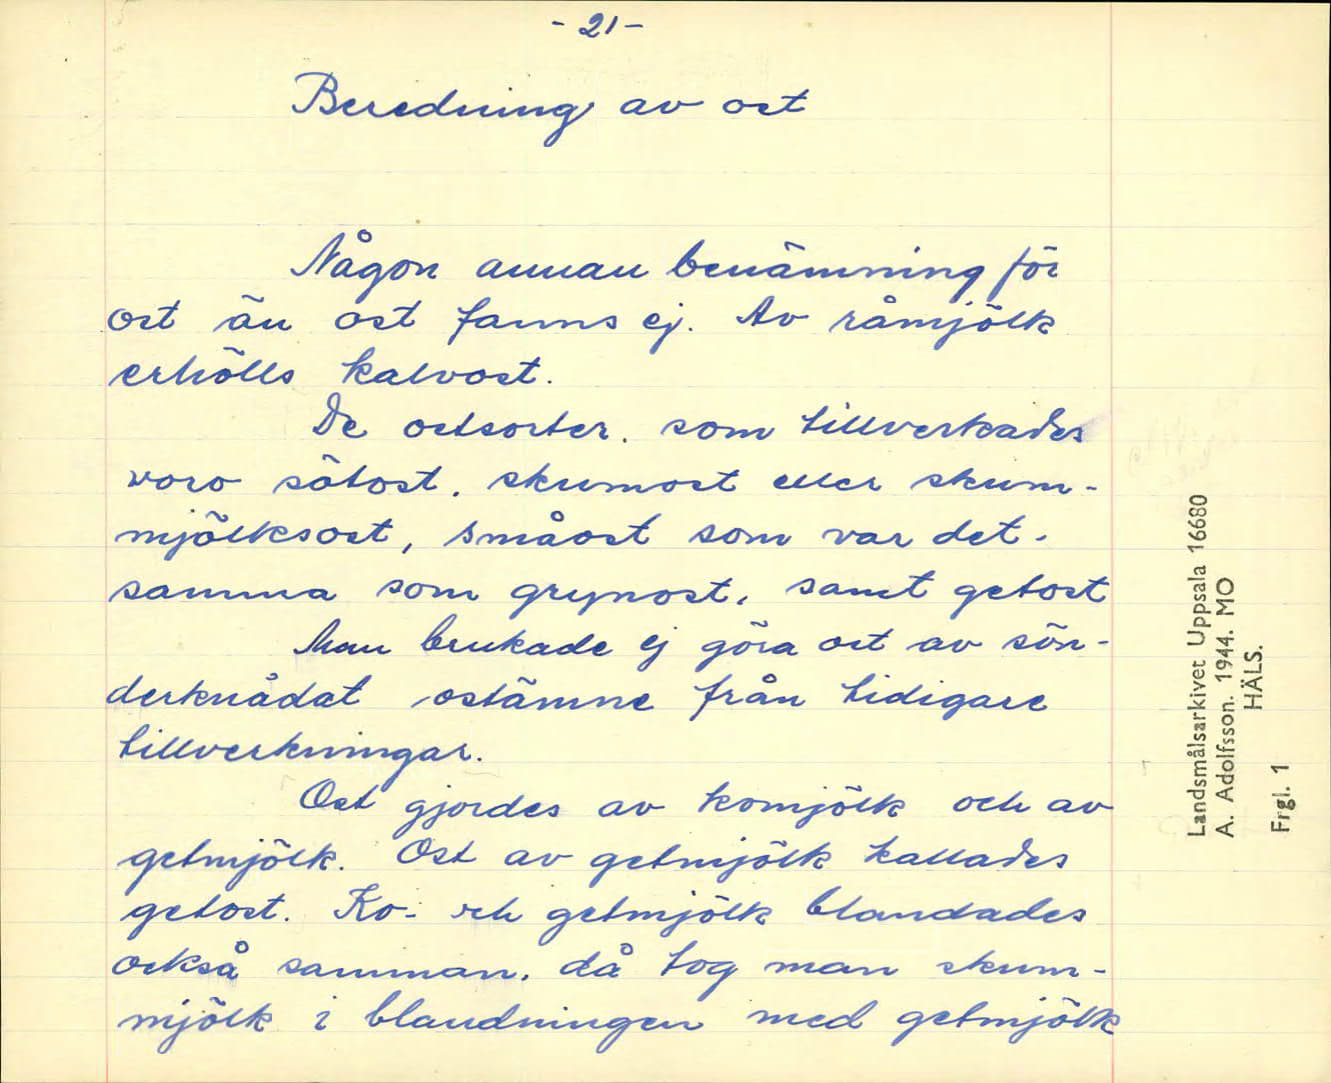 - 21 -
Beredning av ost
Någon annan benämning för
ost än ost fanns ej. Av råmjölk
erhölls kalvost.
De ostsorter, som tillverkades
voro sötost, skumost eller skum-
mjölksost, småost som var det-
samma som grynost, samt getost
Man brukade ej göra ost av sön-
derknådat ostämne från tidigare
tillverkningar.
Ost gjordes av komjölk och av
getmjölk. Ost av getmjölk kallades
getost. Ko- och getmjölk blandades
också samman, då tog man skum-
mjölk i blandningen med getmjölk
Landsmålsarkivet Uppsala 16680
A. Adolfsson. 1944. MO
HÄLS.
Frgl. 1